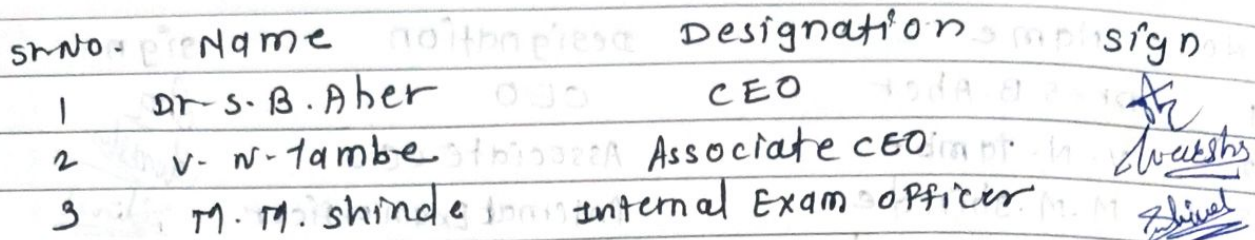 Sr.No. Name Designation sign
1 Dr S. B. Aher CEO
2 V. N. Tambe Associate CEO
3 M. M. Shinde Internal Exam officer